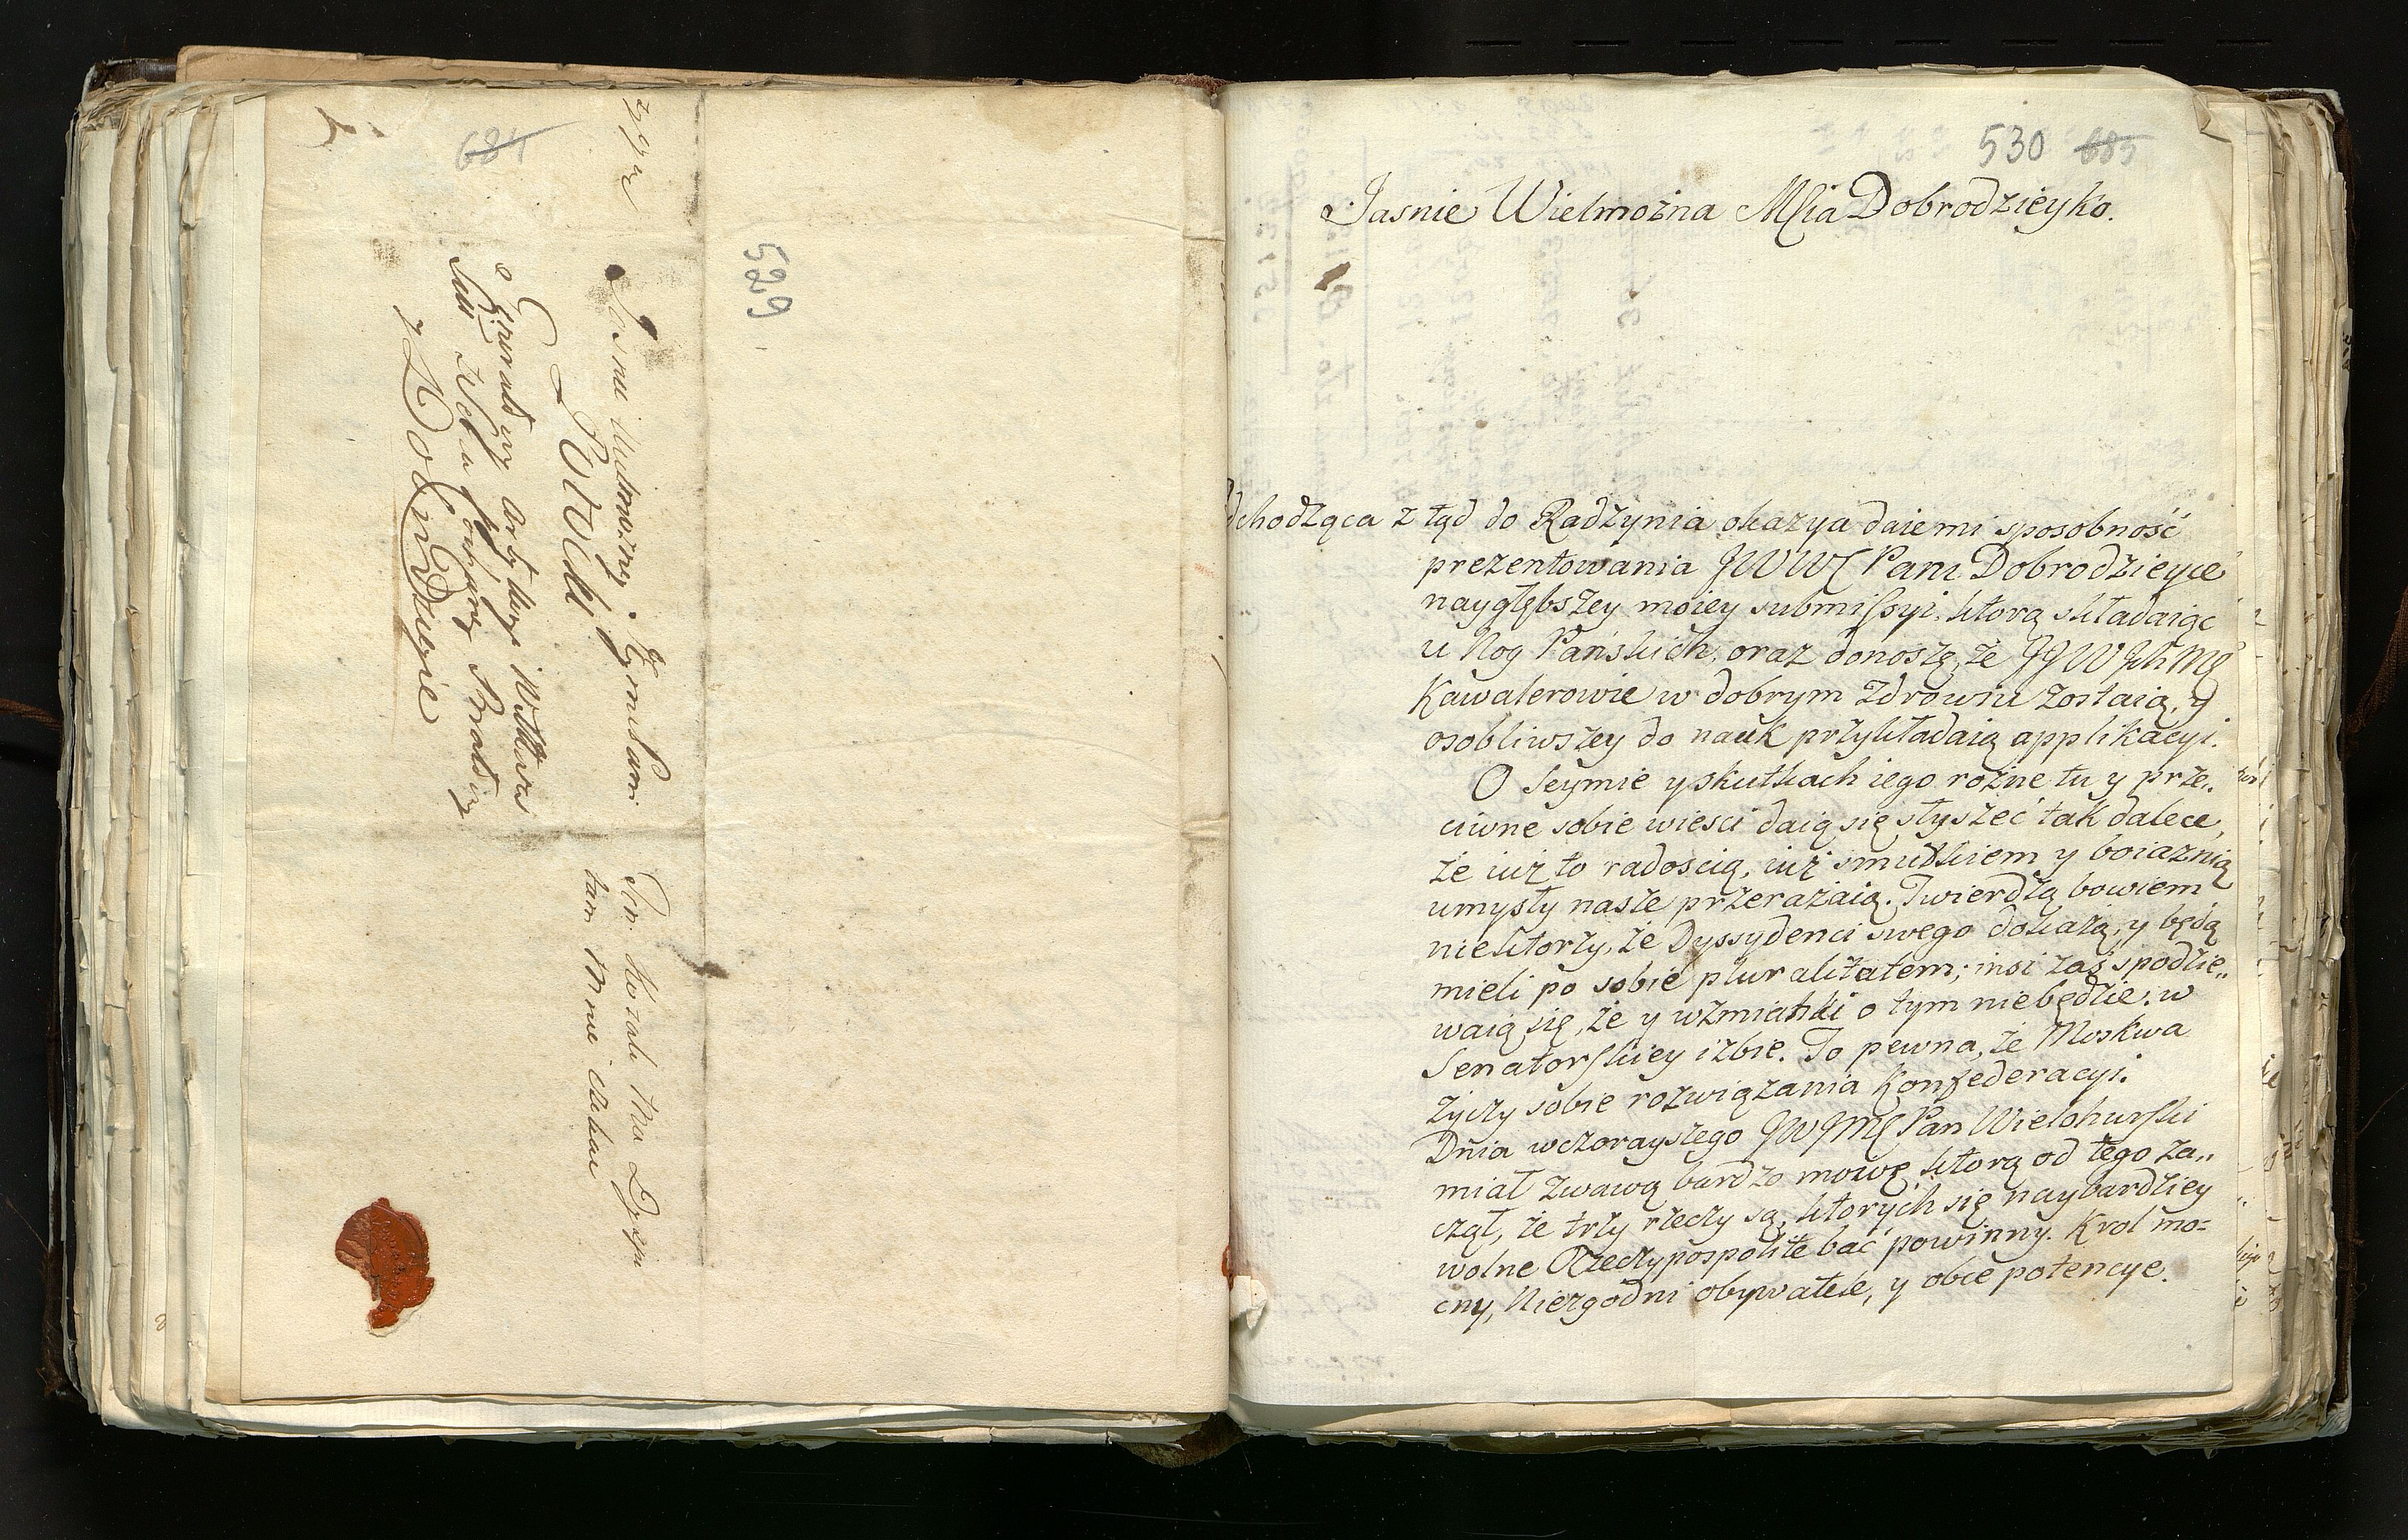 684
529
Jasnie Wielmożney Jeymsani
Potocki
Generałowy Artyleryi W: Xtwa
z Dołu Długie
tam Mnie czekac
530 685
Jasnie Wielmożna MCia Dobrodzieyko.
dchodząca z tąd do Radzynia okazya daie mi sposobność
prezentowania JWWC Pani Dobrodzieyce
naygłębszey moiey submissyi, ktorą składaiąc
u Nog Pańskich, oraz donoszę, że JJWJchMC
Kawalerowie w dobrym zdrowiu zostaią, y
osobliwszey do nauk przykładaią applikacyi.
O Seymie y skutkach iego rożne tu y prze„
ciwne sobie wiesci daią się słyszeć tak dalece,
że iuż to radoscią, iuż smutkiem y boiaznią
umysły nasze przerażaią. Twierdzą bowiem
niektorzy, że Dyssydenci swego dokażą, y będą
mieli po sobie pluralitatem; insi zaś spodzie„
waią się, że y wzmianki o tym niebędzie w
Senatorskiey izbie. To pewna, że Moskwa
życzy sobie rozwiązania Konfederacyi.
Dnia wczorayszego JWJMC Pan Wielohurski
miał żwawą bardzo mowę, ktorą od tego za„
czął, że trzy rzeczy są, ktorych się naybardziey
wolne Rzeczypospolite bać powinny. Krol mo=
cny, Niezgodni obywatele, y obce potencye.